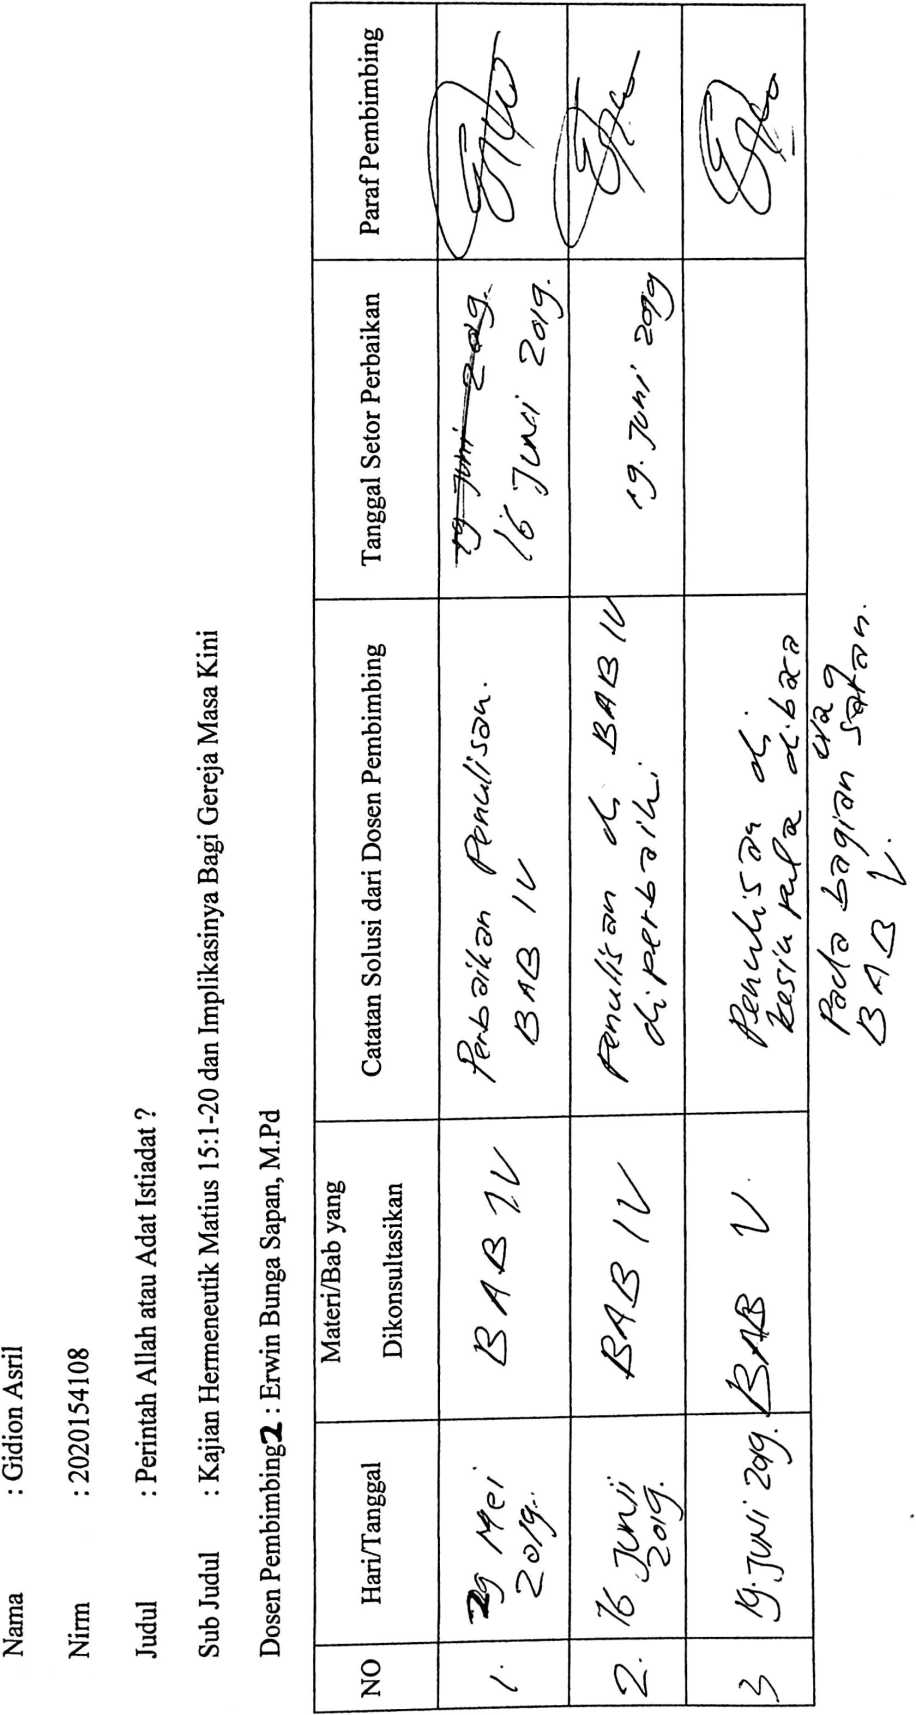 Nama : Gidion Asril
Nirm : 2020154108
Judul : Perintah Allah atau Adat Istiadat ?
Sub Judul : Kajian Hermeneutik Matius 15:1-20 dan Implikasinya Bagi Gereja Masa Kini
Dosen Pembimbing 2 : Erwin Bunga Sapan, M.Pd
NO
Hari/Tanggal
Materi/Bab yang
Dikonsultasikan
Catatan Solusi dari Dosen Pembimbing
Tanggal Setor Perbaikan
Paraf Pembimbing
1.
29 Mei
2019.
BAB IV
Perbaikan Penulisan.
BAB IV
19 Juni 2019.
16 Juni 2019.
2.
16 Junii
2019.
BAB IV
Penulisan di BAB IV
diperbaiki.
19. Juni 2019
3
19. Juni 2019.
BAB V
Penulisan di
dibaca
Pada bagian saran.
BAB V.